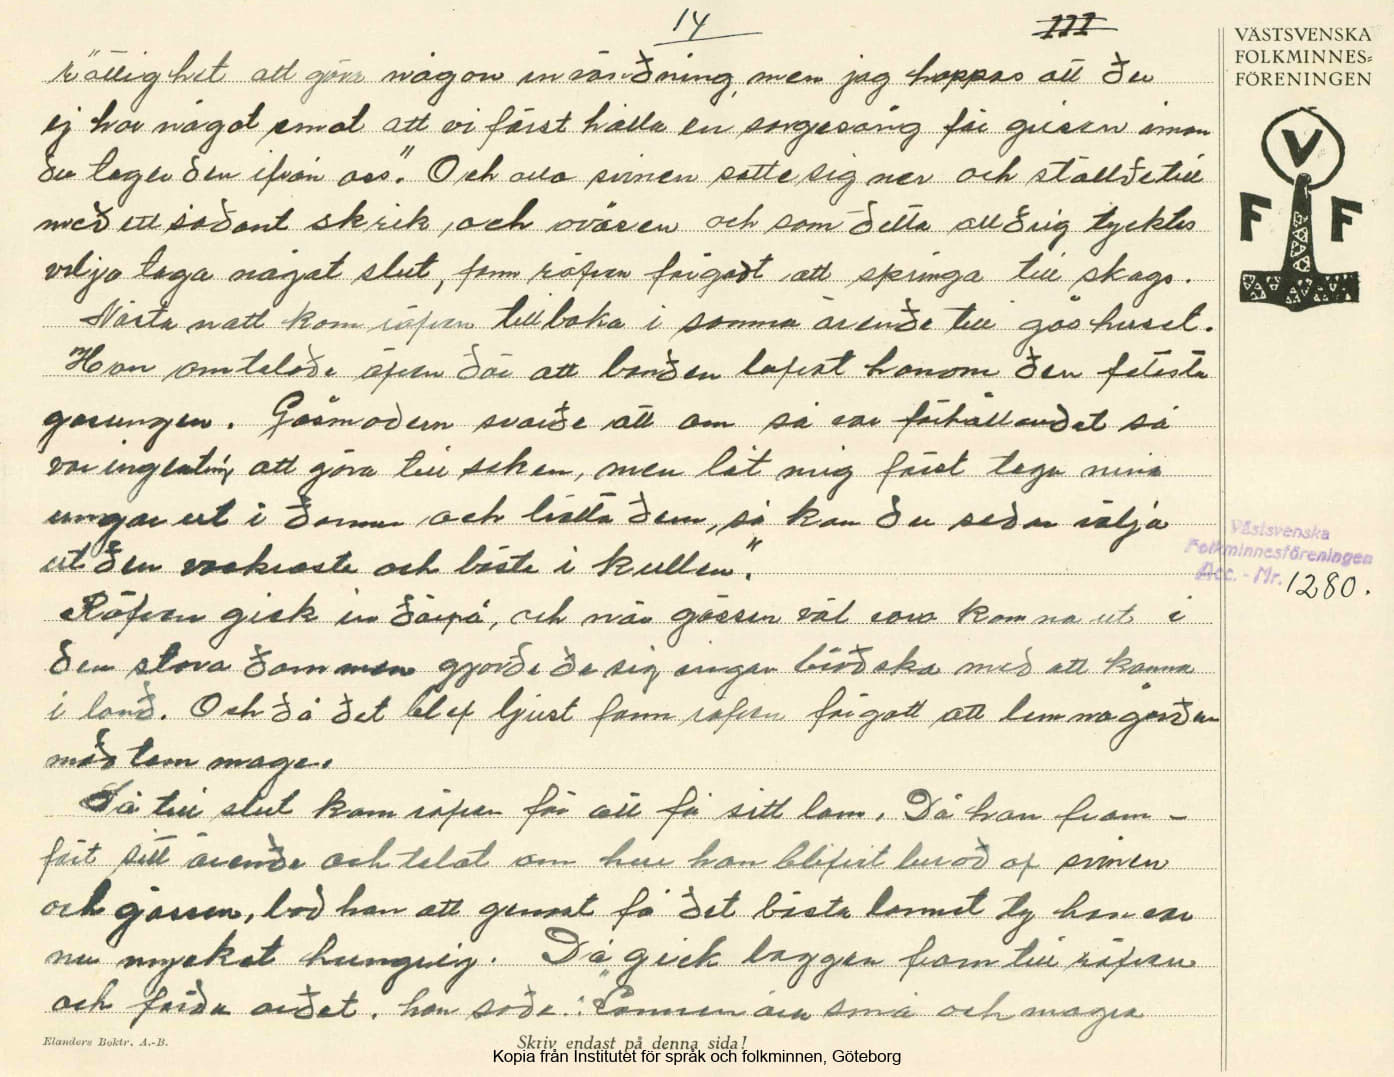 14
III
VÄSTSVENSKA
FOLKMINNES=
FÖRENINGEN
V
F F
rättighet att göra någon invändning, men jag hoppas att du
ej har något emot att vi först hålla en sorgesång för grisen innan
du tager den ifrån oss". Och alla svinen satte sig ner och ställde till
med ett sådant skrik, och oväsen och som detta alldrig tycktes
velja taga något slut, fann räfven förgodt att springa till skogs.
Nästa natt kom räfven tillbaka i samma ärende till gåshuset.
Han omtalade äfven där att bonden lofvat honom den fetesta
gasungen. Gåsmodern svarde att om så var förhållandet så
var ingenting att göra till saken, men låt mig först taga mina
ungar ut i dammen och tvätta dem, så kan du sedan välja
ut den vackraste och bäste i kullen".
Räfven gick in därpå, och när gässen väl voro komna ut i
den stora dammen gjorde de sig ingen brådska med att komma
i land. Och då det blef ljust fann räfven förgott att lemna gården
med tom mage.
Så till slut kom räfven för att få sitt lam. Då han fram-
fört sitt ärende och talat om hur han blifvit lurad af svinen
och gässen, bad han att genast få det bästa lammet ty han var
nu mycket hungrig. Då gick baggen fram till räfven
och förde ordet. han sade: "Lammen äro små och magra
Västsvenska
Folkminnesföreningen
Acc. - Nr. 1280.
Elanders Boktr. A.-B.
Skriv endast på denna sida!
Kopia från Institutet för språk och folkminnen, Göteborg